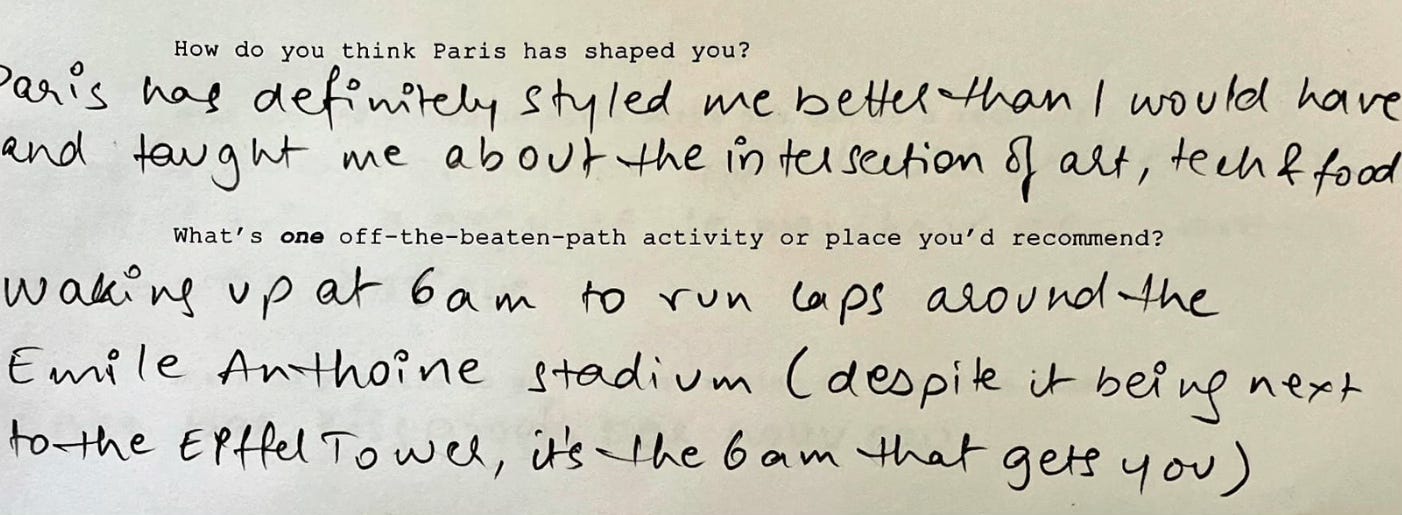 How do you think Paris has shaped you?
Paris has definitely styled me better than I would have
and taught me about the intersection of art, tech & food
What's one off-the-beaten-path activity or place you'd recommend?
waking up at 6am to run laps around the
Emile Anthoine stadium (despite it being next
to the Eiffel Tower, it's the 6am that gets you)